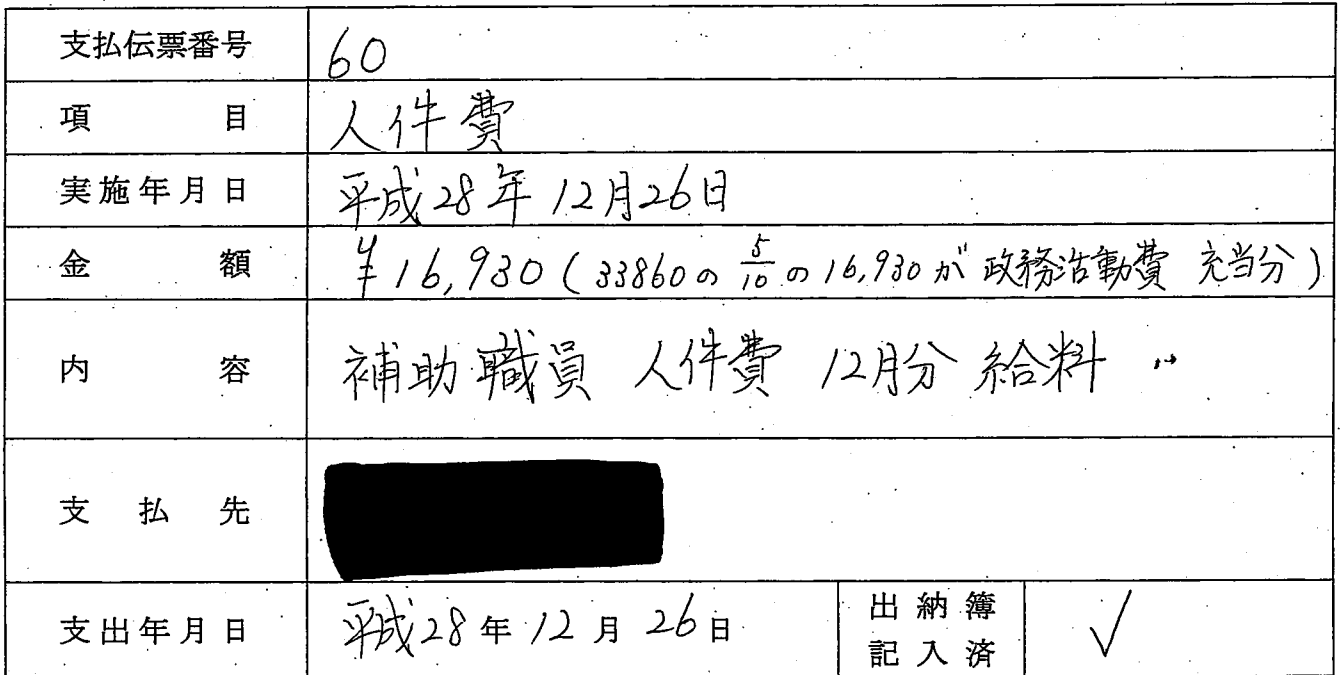 支払伝票番号 60
項目 人件費
実施年月日 平成28年12月26日
金額 ¥16,930(33860の5/10の16,930が政務活動費 充当分)
内容 補助職員 人件費 12月分 給料
支払先
支出年月日 平成28年12月26日 出納簿記入済 ✓